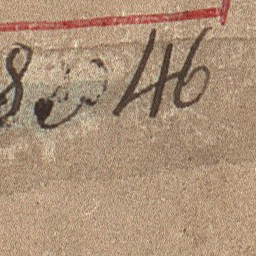 8 46